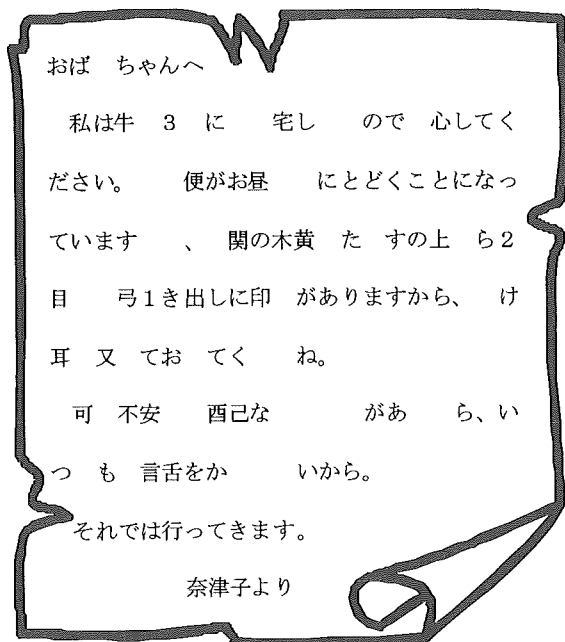 おば　ちゃんへ
　私は牛　3　に　　宅し　　ので　心してく
ださい。　　便がお昼　　にとどくことになっ
ています　　、　関の木黄　た　すの上　ら２
目　　弓１き出しに印　がありますから、　け
耳　又　てお　てく　　ね。
　可　不安　　酉己な　　　　があ　　ら、い
つ　も　言舌をか　　　いから。
　それでは行ってきます。
奈津子より